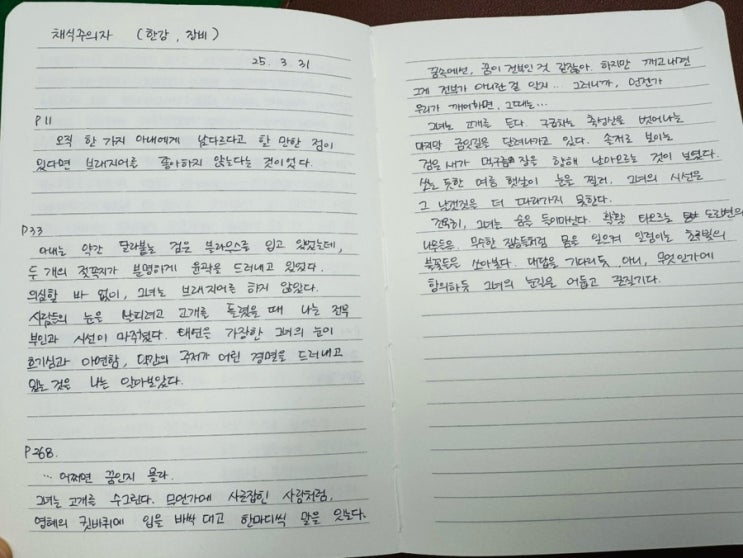 채식주의자 (한강, 창비)
25. 3. 31
P11
오직 한 가지 아내에게 남다르다고 할 만한 점이
있다면 브래지어를 좋아하지 않는다는 것이었다.
P33
아내는 약간 달라붙는 검은 블라우스를 입고 있었는데,
두 개의 젖꼭지가 분명하게 윤곽을 드러내고 있었다.
의심할 바 없이, 그녀는 브래지어를 하지 않았다.
사람들의 눈을 살피려고 고개를 돌렸을 때 나는 전무
부인과 시선이 마주쳤다. 태연을 가장한 그녀의 눈이
호기심과 아연함, 약간의 주저가 어린 경멸을 드러내고
있는 것을 나는 알아보았다.
P268.
… 어쩌면 꿈인지 몰라.
그녀는 고개를 수그린다. 무언가에 사로잡힌 사람처럼,
영혜의 귓바퀴에 입을 바싹 대고 한마디씩 말을 잇는다.
꿈속에선, 꿈이 전부인 것 같잖아. 하지만 깨고나면
그게 전부가 아니란걸 알지… 그러니까, 언젠가
우리가 깨어나면, 그때는…
그녀는 고개를 든다. 구급차는 축성산을 벗어나는
마지막 굽잇길을 달려나가고 있다. 솔개로 보이는
검은 새가 먹구름장을 향해 날아오르는 것이 보였다.
쏘는 듯한 여름 햇살이 눈을 찔러, 그녀의 시선은
그 날갯짓을 더 따라가지 못한다.
조용히, 그녀는 숨을 들이마신다. 활활 타오르는 도로변의
나무들을, 무수한 짐승들처럼 몸을 일으켜 일렁이는 초록빛의
불꽃들을 쏘아본다. 대답을 기다리듯, 아니, 무엇인가에
항의하듯 그녀의 눈길은 어둡고 끈질기다.